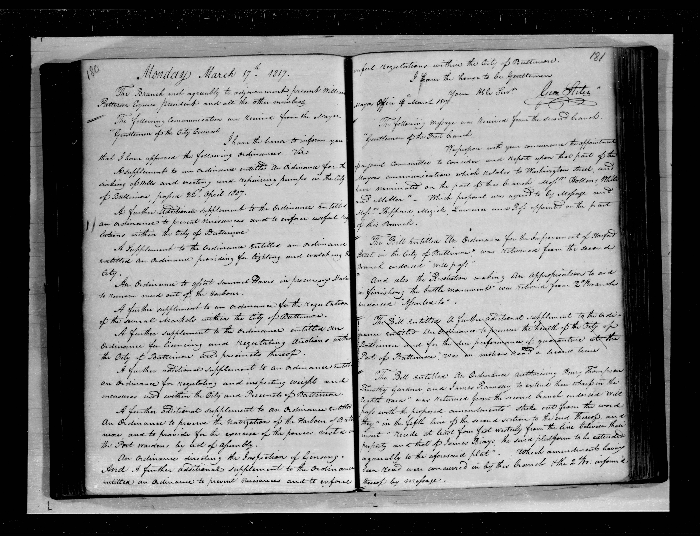 180
Monday March 17th 1817.
The Branch met agreeably to adjournment, present William
Patterson Esquire president and all the other members
The following Communication was received from the Mayor
"Gentlemen of the City Council
I have the honor to inform you
that I have approved the following Ordinances. Viz.
A supplement to an Ordinance entitled An Ordinance for the
sinking of Wells and erecting and repairing pumps in the City
of Baltimore passed 22d April 1807.
A further additional supplement to the Ordinance entitled
an ordinance to prevent Nuisances and to enforce useful re-
gulations within the City of Baltimore
A Supplement to the Ordinance entitled an ordinance
entitled an Ordinance providing for lighting and watching the
City.
An Ordinance to assist Samuel Davis in
to remove mud out of the Harbour.
A further supplement to an ordinance for the regulation
of the several Markets within the City of Baltimore.
A further supplement to the ordinance entitled An
Ordinance for licencing and regulating Auctions within
the City of Baltimore and precincts thereof.
A further additional supplement to an Ordinance entitled
an Ordinance for regulating and inspecting weights and
measures used within the City and Precincts of Baltimore.
A further additional supplement to an Ordinance entitled
An Ordinance to preserve the navigation of the Harbour of Balti-
more and to provide for the exercise of the powers vested in
the Port wardens by Act of Assembly.
An Ordinance directing the Inspection of
And A further additional supplement to the Ordinance
entitled an Ordinance to prevent nuisances and to enforce
181
useful regulations within the City of Baltimore.
I have the honor to be Gentlemen
Your Obt. Servt.
Geo: Stiles"
Mayors Office March 1817
The following Message was received from the second branch.
"Gentlemen of the First branch
We propose with your concurrence the appointment
of a joint Committee to consider and report upon that part of the
Mayors communications which relates to Washington Street, and
have nominated on the part of this branch Messrs
Which proposal was agreed to by Message and
Messrs Sheppard, Meyer, Lawson and appointed on the part
of this Branch.
The Bill entitled An Ordinance for the improvement of Harford
Street in the City of Baltimore was returned from the second
Branch endorsed "will pass"
And also the Resolution making An Appropriation to aid
in finishing the battle monument was returned from 2nd branch
endorsed "Assented to."
The Bill entitled A further additional supplement to the Ordi-
nance entitled An Ordinance to preserve the health of the City of
Baltimore and for the due performance of quarantine at the
Port of Baltimore was on motion read a second time
The Bill entitled An Ordinance authorising Henry Thompson
Timothy Gardner and James Ramsay to extend their wharf in the
eighth ward was returned from the second branch endorsed will
pass with the proposed amendments. Strike out from the word
"they" in the fifth line of the second section to the end thereof and
insert "recede at least four feet westerly from the line between their
property and that of James Biays, the said platform to be extended
agreeably to the aforesaid plat". Which amendments having
been read was concurred in by this branch & the 2nd Br. informed
thereof by Message.